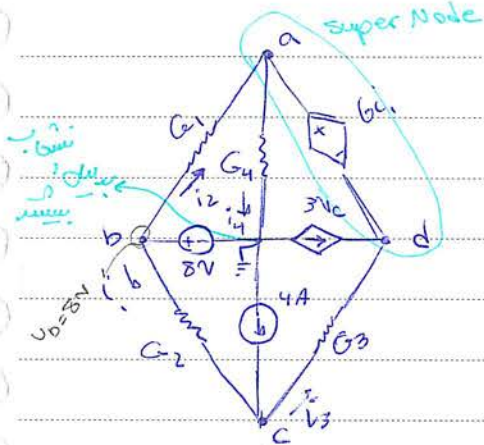 super Node
a
G1
6i1
+
-
G4
i2
i4
3Vc
b
+ -
8V
d
VD=8V
i1
4A
G2
G3
i3
c